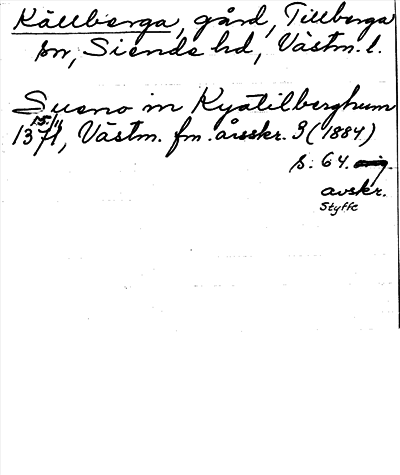 Källberga, gård, Tillberga
sn, Siende hd, Västm. l.
Sueno in Kyætilberghum
15/11
1371, Västm. fm. årsskr. 3 (1884)
s. 64.
avskr.
Styffe